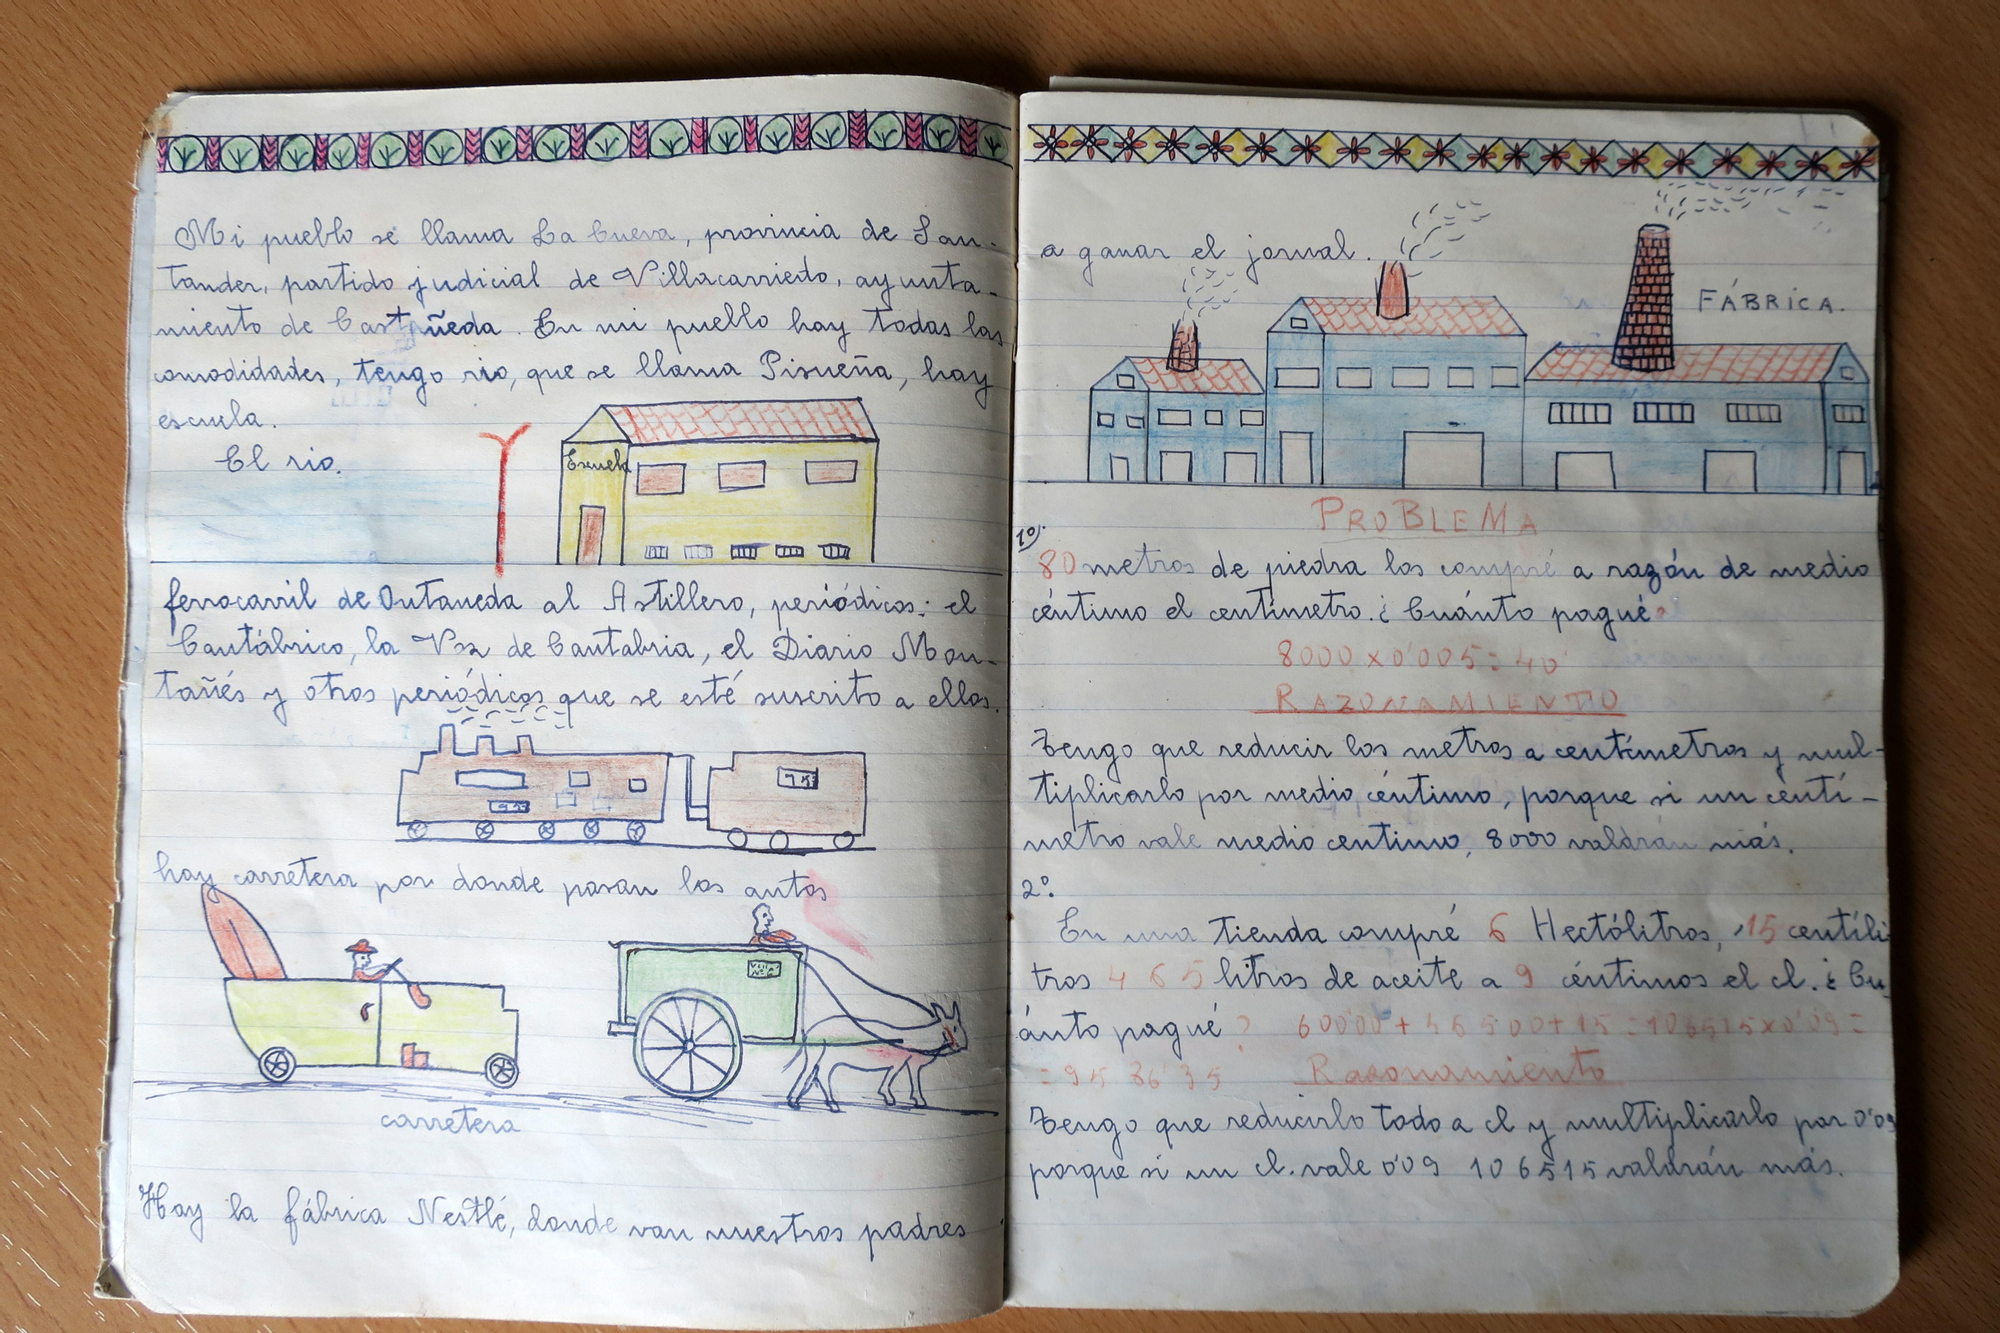 Mi pueblo se llama La Cueva, provincia de San-
tander, partido judicial de Villacarriedo, ayunta-
miento de Castañeda. En mi pueblo hay todas las
comodidades, tengo rio, que se llama Pisueña, hay
escuela.
El rio.
Escuela
ferrocarril de Ontaneda al Astillero, periódicos: el
Cantábrico, la Voz de Cantabria, el Diario Mon-
tañés y otros periódicos que se esté suscrito a ellos.
hay carretera por donde pasan los autos
carretera
Hay la fábrica Nestlé, donde van nuestros padres
a ganar el jornal.
FÁBRICA.
PROBLEMA
1º).
80 metros de piedra los compré a razón de medio
céntimo el centímetro. ¿Cuánto pagué?
8000 x 0'005 = 40'
RAZONAMIENTO
Tengo que reducir los metros a centímetros y mul-
tiplicarlo por medio céntimo, porque si un centí-
metro vale medio centimo, 8000 valdrán más.
2º.
En una tienda compré 6 Hectólitros, 15 centíli-
tros 465 litros de aceite a 9 céntimos el cl. ¿Cu-
ánto pagué? 60000 + 46500 + 15 = 106515 x 0'09 =
= 9586'35
Razonamiento
Tengo que reducirlo todo a cl y multiplicarlo por 0'09
porque si un cl. vale 0'09 106515 valdrán más.